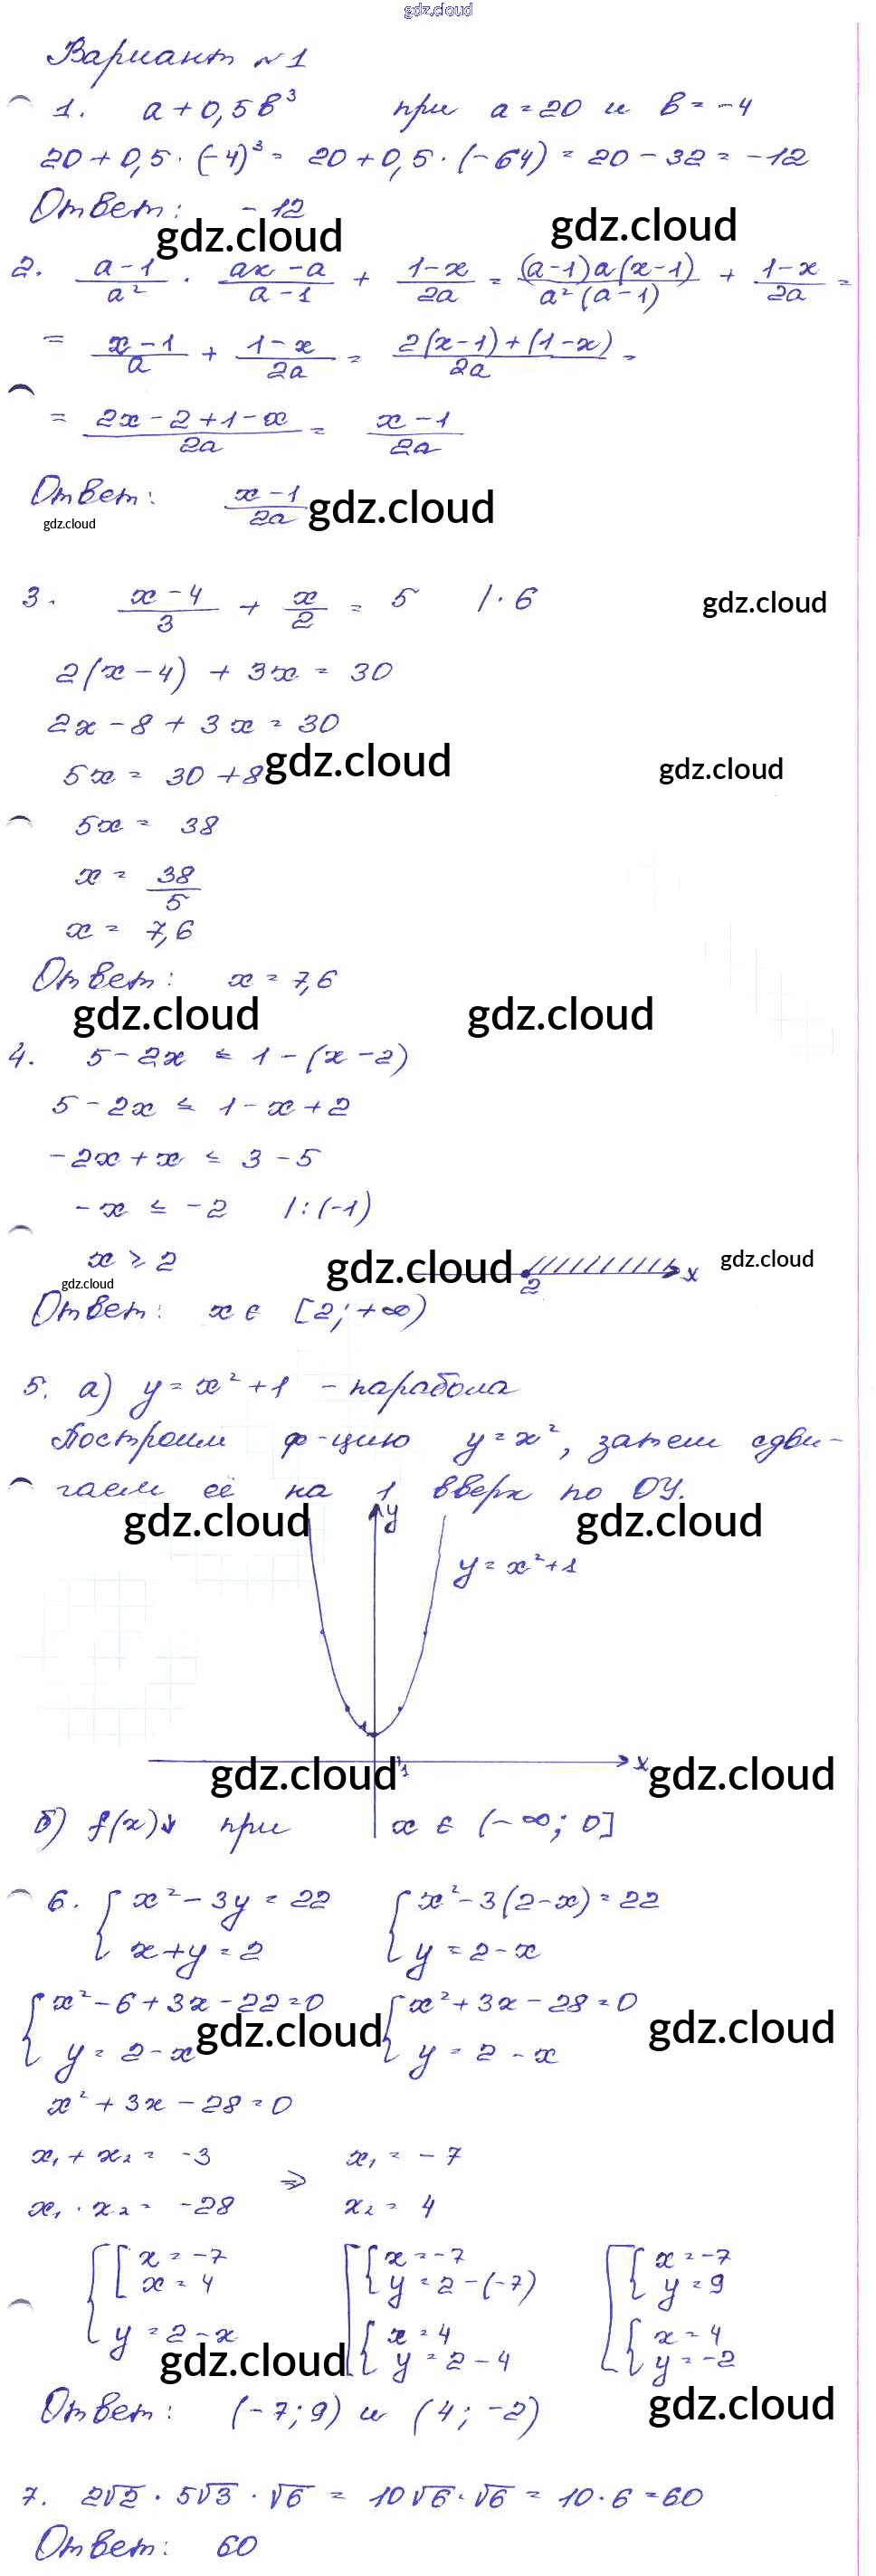 gdz.cloud
Вариант №1
1. a + 0,5b³ при a = 20 и b = -4
20 + 0,5 · (-4)³ = 20 + 0,5 · (-64) = 20 - 32 = -12
Ответ: -12
gdz.cloud gdz.cloud
2. (a-1)/a² · (ax-a)/(a-1) + (1-x)/2a = (a-1)a(x-1)/a²(a-1) + (1-x)/2a =
= (x-1)/a + (1-x)/2a = (2(x-1)+(1-x))/2a =
= (2x-2+1-x)/2a = (x-1)/2a
Ответ: (x-1)/2a gdz.cloud
gdz.cloud
3. (x-4)/3 + x/2 = 5 | · 6 gdz.cloud
2(x-4) + 3x = 30
2x - 8 + 3x = 30
5x = 30 + 8 gdz.cloud gdz.cloud
5x = 38
x = 38/5
x = 7,6
Ответ: x = 7,6
gdz.cloud gdz.cloud
4. 5 - 2x ≤ 1 - (x-2)
5 - 2x ≤ 1 - x + 2
-2x + x ≤ 3 - 5
-x ≤ -2 | : (-1)
x ≥ 2 gdz.cloud 2 x gdz.cloud
gdz.cloud
Ответ: x ∈ [2; +∞)
5. а) y = x² + 1 - парабола
Построим ф-цию y = x², затем сдви-
гаем её на 1 вверх по OY.
gdz.cloud y gdz.cloud
y = x² + 1
1
gdz.cloud 1 x gdz.cloud
б) f(x)↓ при x ∈ (-∞; 0]
6. { x² - 3y = 22 { x² - 3(2-x) = 22
{ x + y = 2 { y = 2 - x
{ x² - 6 + 3x - 22 = 0 { x² + 3x - 28 = 0
{ y = 2 - x gdz.cloud { y = 2 - x gdz.cloud
x² + 3x - 28 = 0
x₁ + x₂ = -3 ⇒ x₁ = -7
x₁ · x₂ = -28 x₂ = 4
{ [ x = -7 [ { x = -7 [ { x = -7
[ x = 4 { y = 2 - (-7) { y = 9
{ y = 2 - x { x = 4 { x = 4
gdz.cloud { y = 2 - 4 { y = -2
Ответ: (-7; 9) и (4; -2) gdz.cloud
7. 2√2 · 5√3 · √6 = 10√6 · √6 = 10 · 6 = 60
Ответ: 60